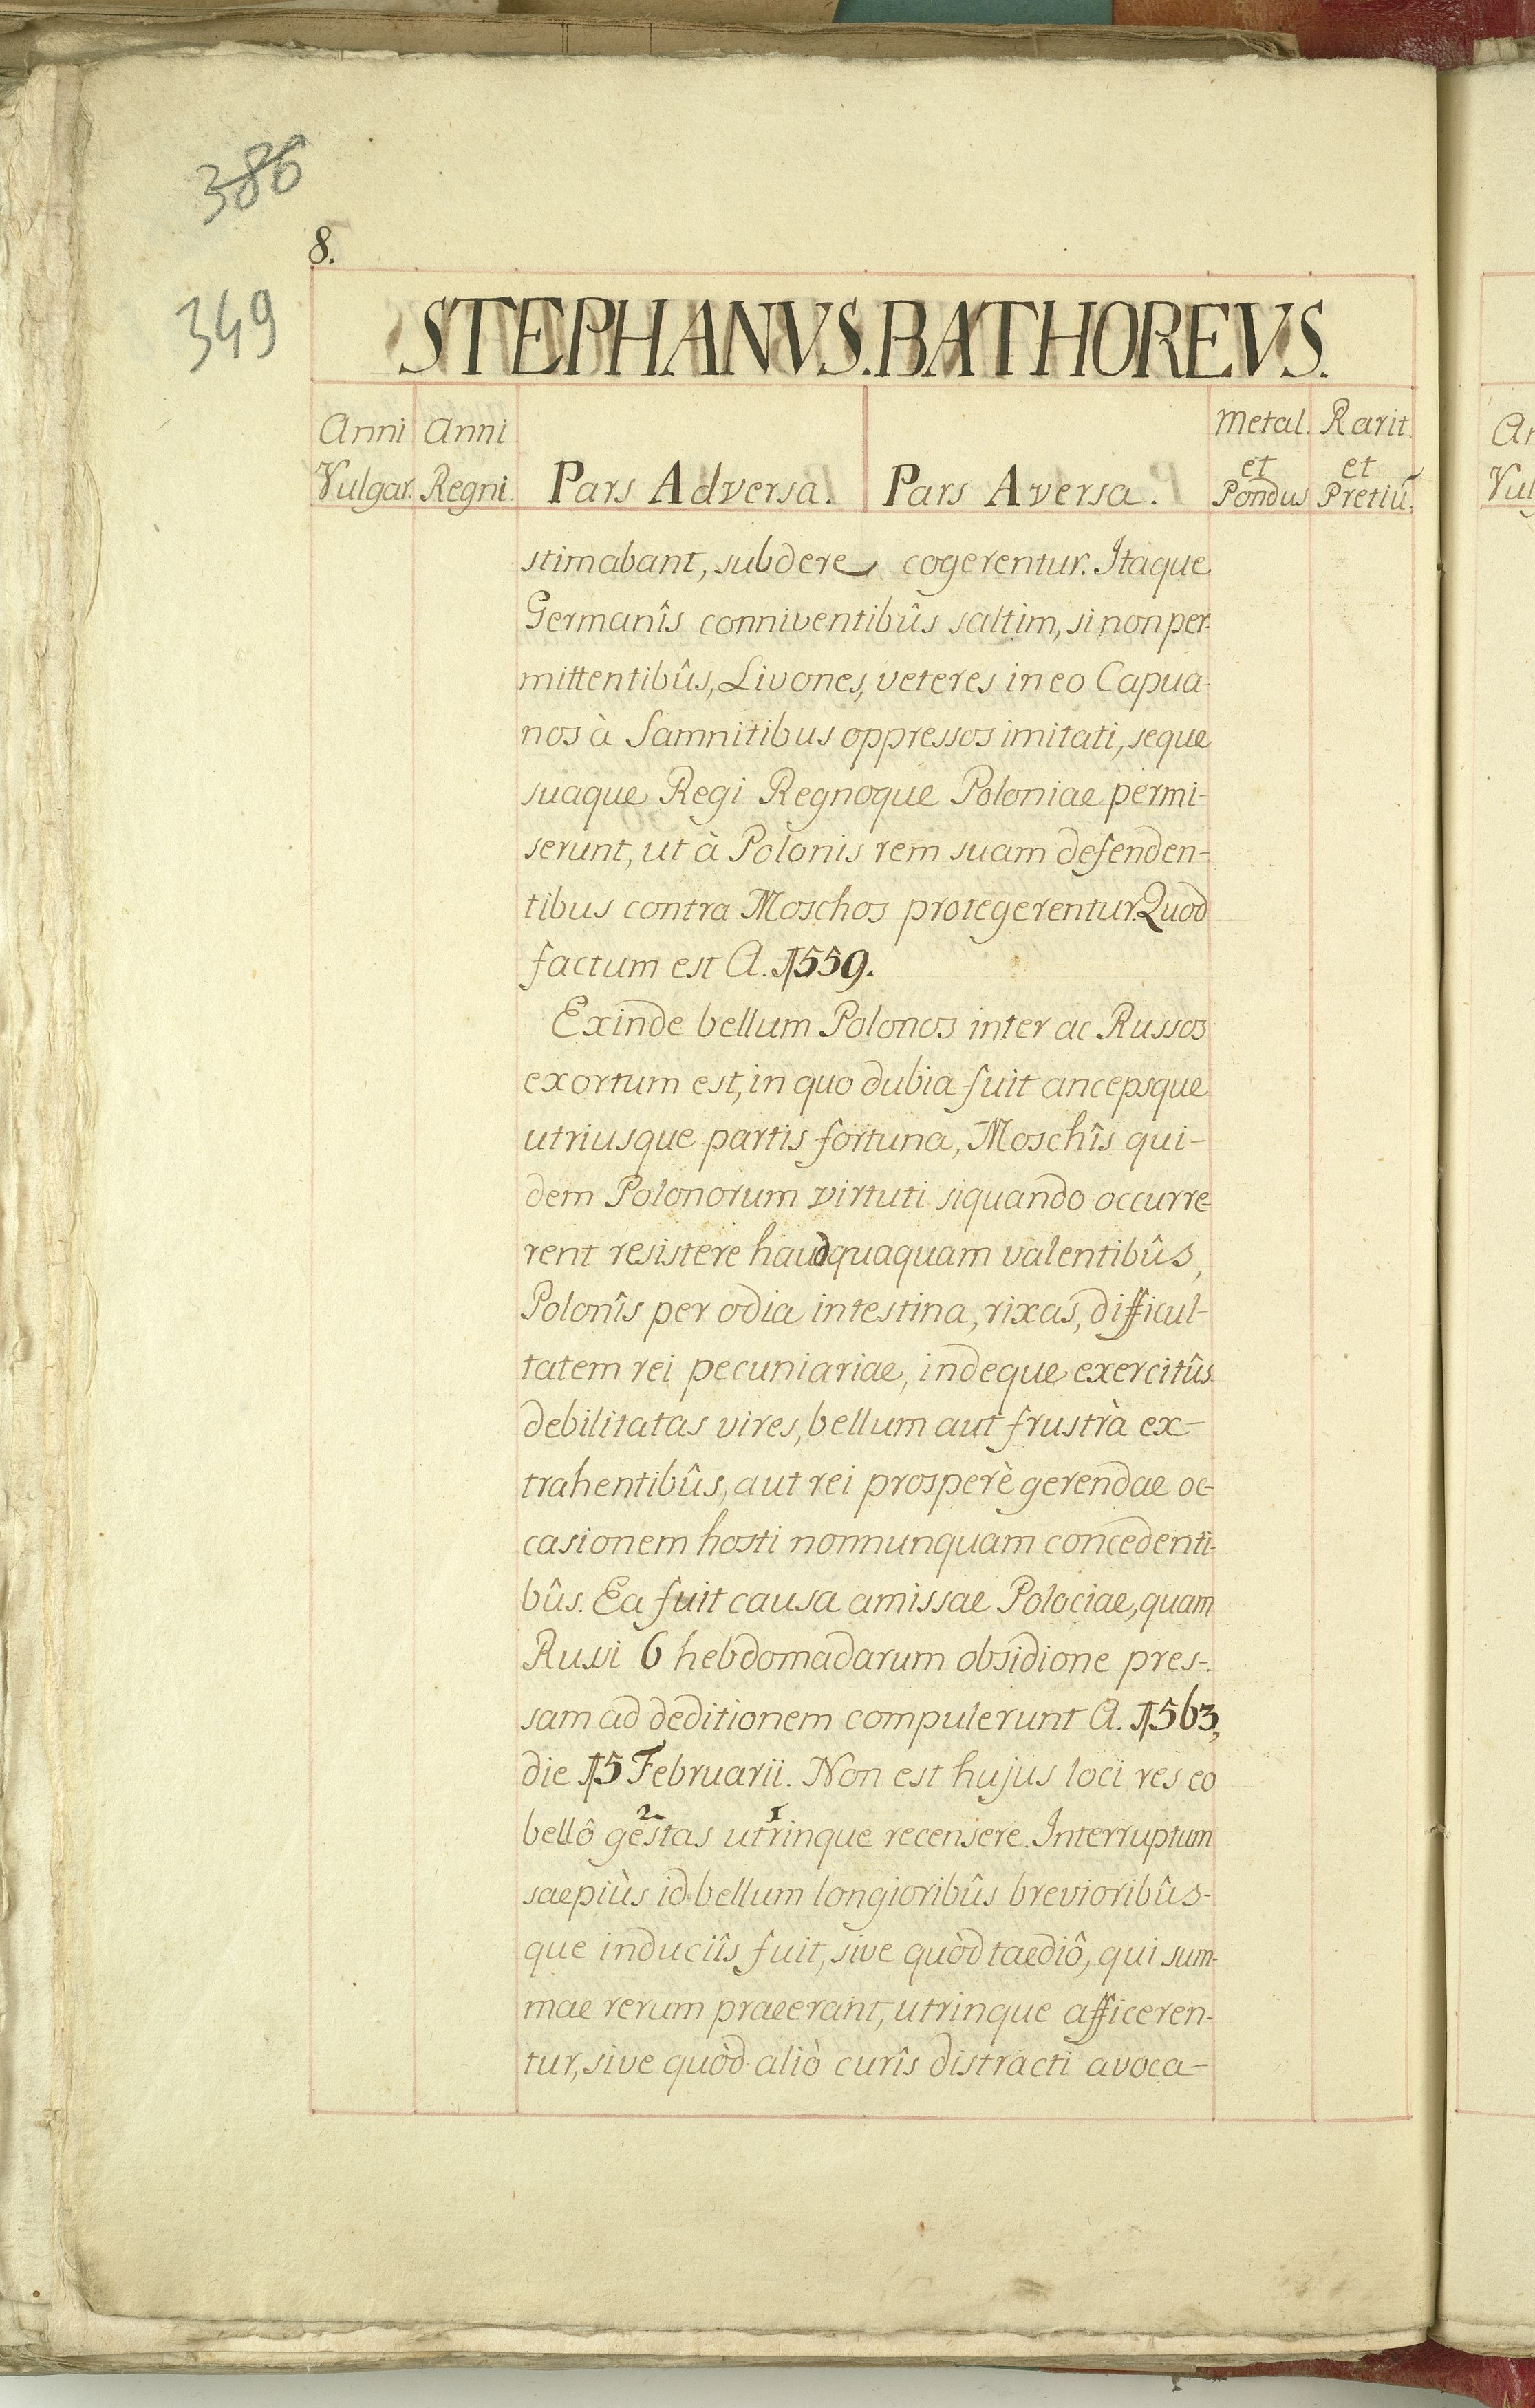 386
8.
349
STEPHANVS.BATHOREVS.
Anni Vulgar.
Anni Regni.
Pars Adversa.
Pars Aversa.
Metal. et Pondus
Rarit. et Pretiũ.
stimabant, subdere cogerentur. Itaque
Germanîs conniventibûs saltim, si non per-
mittentibûs, Livones, veteres in eo Capua-
nos à Samnitibus oppressos imitati, seque
suaque Regi Regnoque Poloniae permi-
serunt, ut à Polonis rem suam defenden-
tibus contra Moschos protegerentur. Quod
factum est A. 1559.
Exinde bellum Polonos inter ac Russos
exortum est, in quo dubia fuit ancepsque
utriusque partis fortuna, Moschîs qui-
dem Polonorum virtuti siquando occurre-
rent resistere haudquaquam valentibûs,
Polonîs per odia intestina, rixas, difficul-
tatem rei pecuniariae, indeque exercitûs
debilitatas vires, bellum aut frustrà ex-
trahentibûs, aut rei prosperè gerendae oc-
casionem hosti nonnunquam concedenti-
bûs. Ea fuit causa amissae Polociae, quam
Russi 6 hebdomadarum obsidione pres-
sam ad deditionem compulerunt A. 1563,
die 15 Februarii. Non est hujus loci res eo
2 1
bellô gestas utrinque recensere. Interruptum
saepiùs id bellum longioribûs brevioribûs-
que induciîs fuit, sive quòd taediô, qui sum-
mae rerum praeerant, utrinque afficeren-
tur, sive quòd aliò curîs distracti avoca-
An
Vul